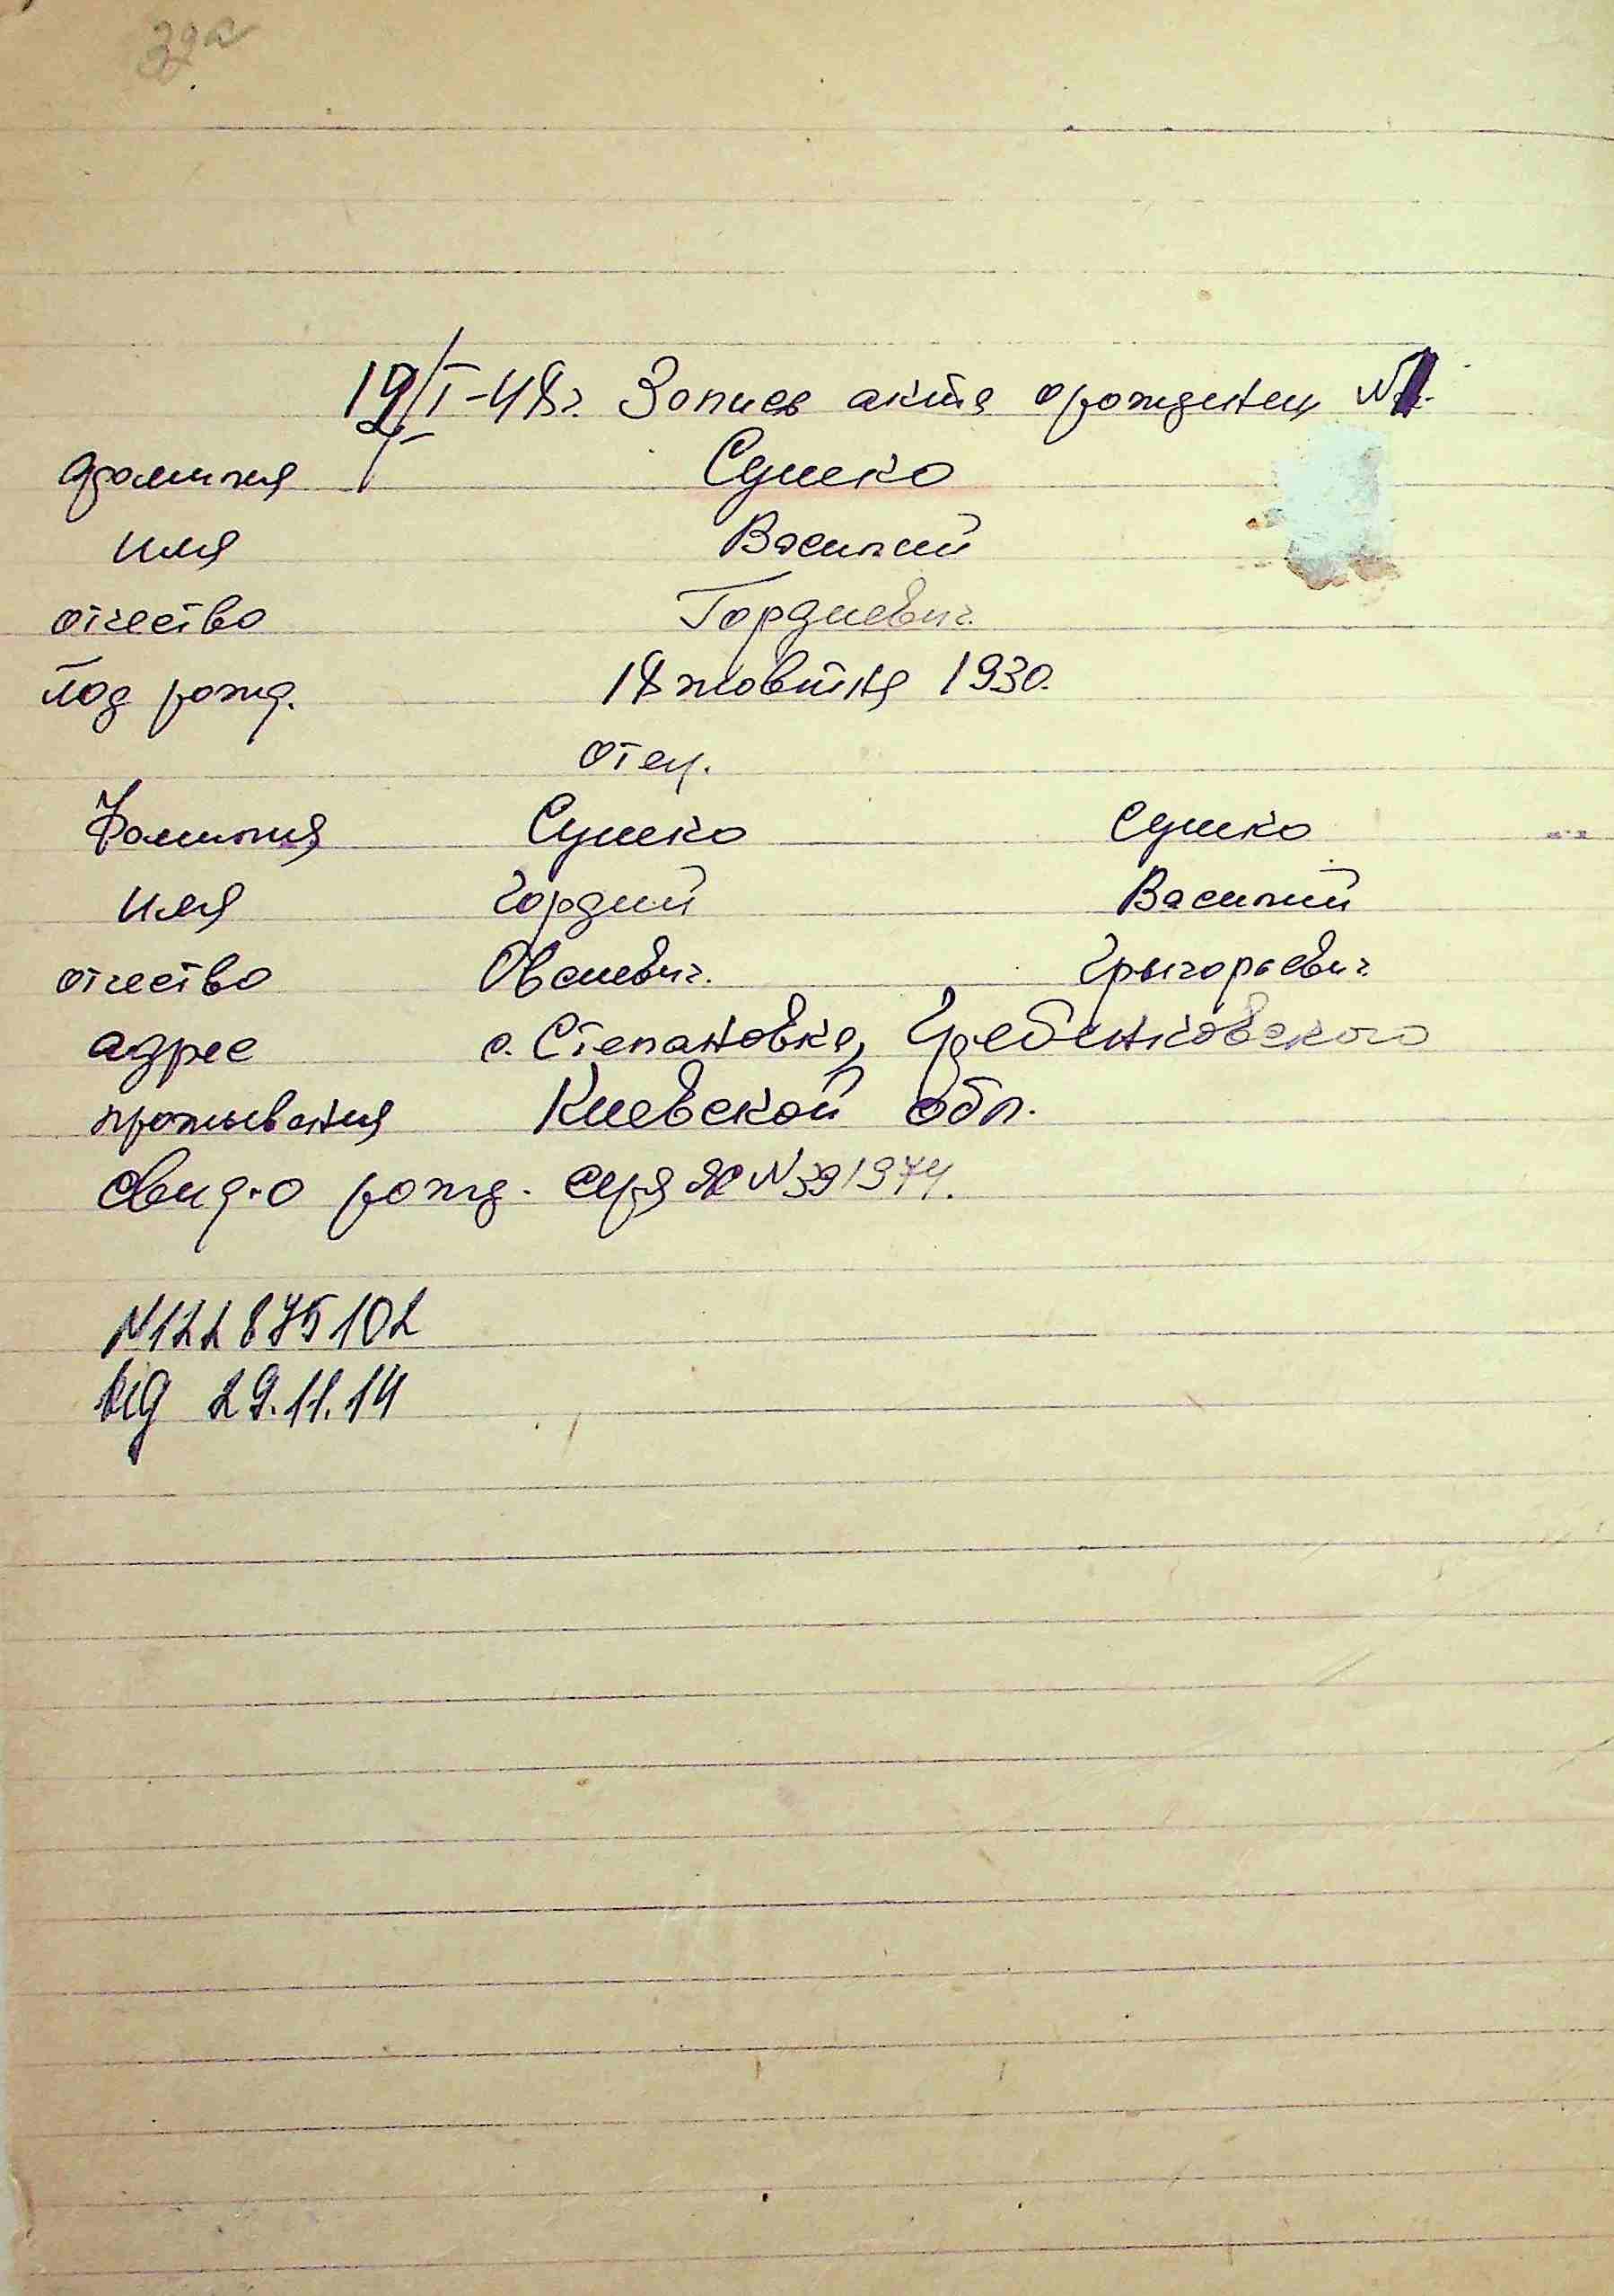 32а
19/I-48г. Запись акта орождении N
фамилия Сушко
имя Василий
отчество Гордиевич.
год рожд. 18 жовтня 1930.
отец.
Фамилия Сушко Сушко
имя Гордий Василий
отчество Овсиевич. Грыгорьевич
адрес с. Степановка, Гребенковского
проживания Киевской обл.
свид.о рожд. серя ЯС N391974.
N122875102
від 29.11.14